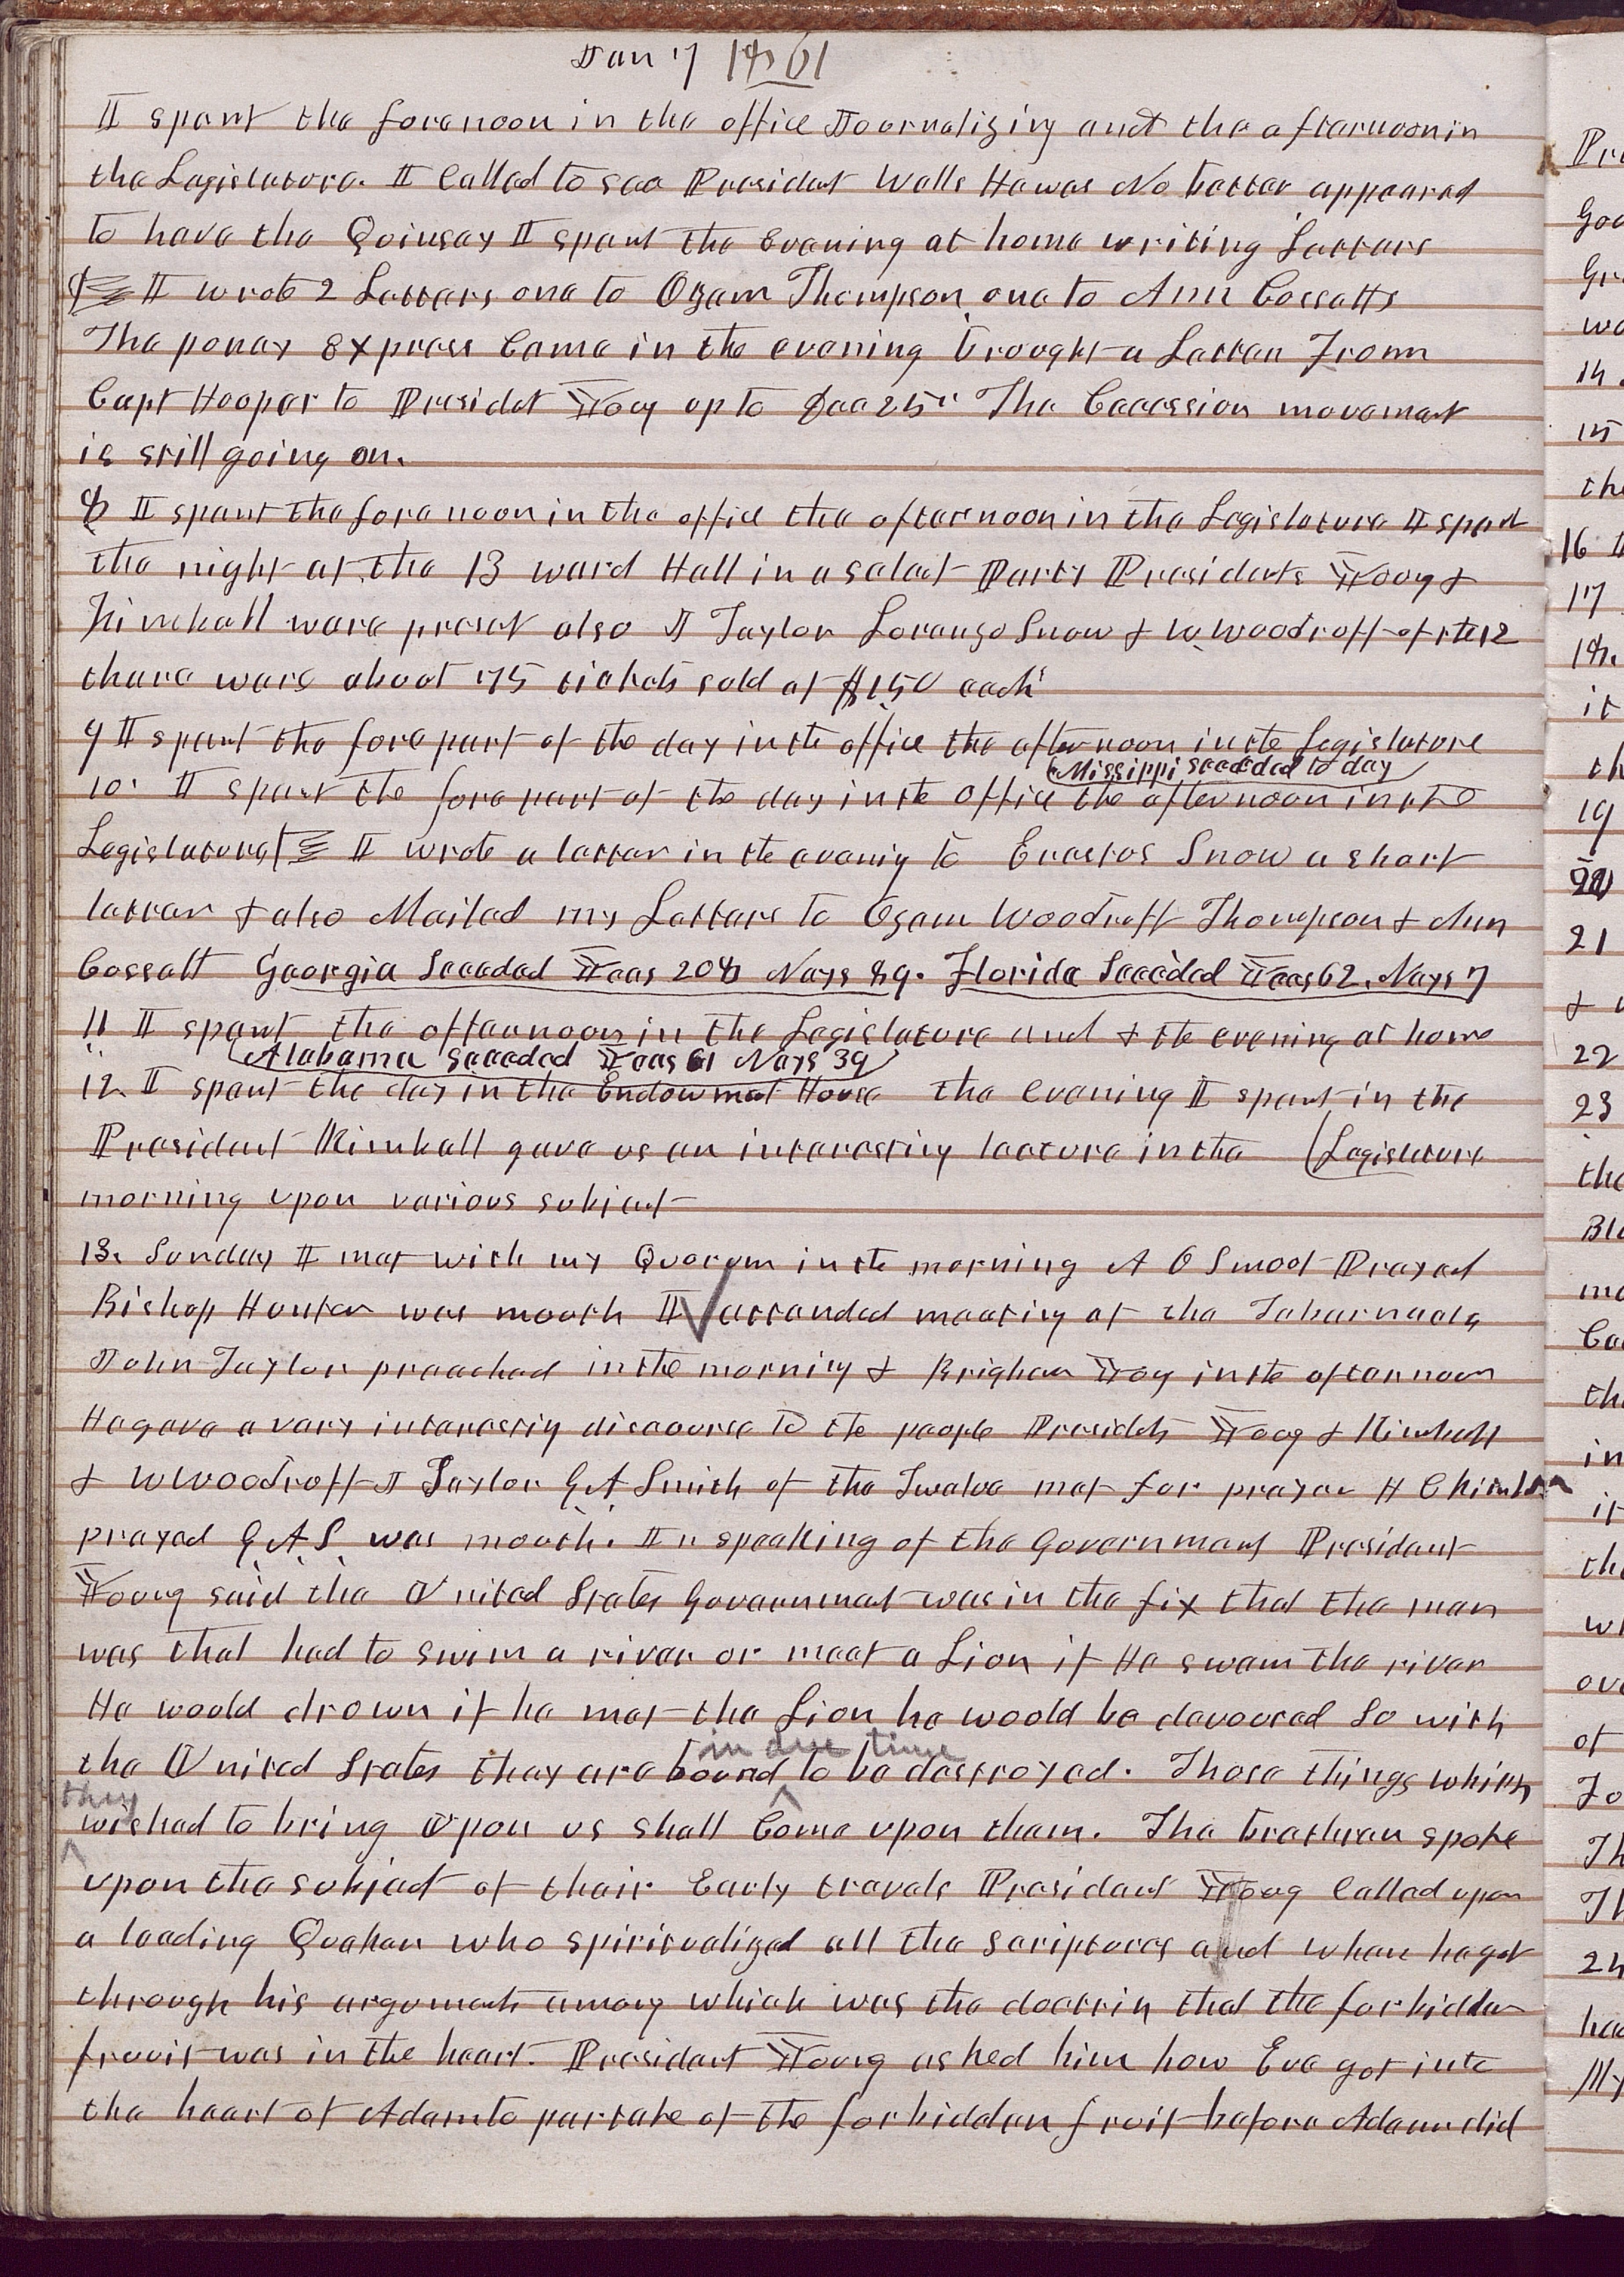 Jan 7 1861
I spent the forenoon in the office Journalizing and the afternoon in
the Legislature. I Called to see President Wells He was No better appeared
to have the Quinsey I spent the Evening at home writing Letters
I wrote 2 Letters one to Ozem Thompson one to Ann Cossetts
The poney Express Came in the evening brought a Letter From
Capt Hooper to Presidet Young up to Dec 25th The Cecession movement
is still going on.
8 I spent the forenoon in the office the afternoon in the Legislature I spent
the night at the 13 ward Hall in a select Party Presidents Young &
Kimball were present also J Taylor Lorenzo Snow & W Woodruff of the 12
there were about 75 tickets sold at $150 each
9 I spent the fore part of the day in the office the afternoon in the Legislature
(Missippi seceded to day)
10 I spent the fore part of the day in the office the afternoon in the
Legislature I wrote a letter in the evenig to Erastus Snow a short
letter & also Mailed my Letters to Ozem Woodruff Thompson & Ann
Cossett Georgia Seceded Yeas 208 Nays 89. Florida Seceded Yeas 62. Nays 7
11 I spent the afternoon in the Legislature and & the evening at home
(Alabama seceded Yeas 61 Nays 39)
12. I spent the day in the Endowmet House the evening I spent in the
President Kimball gave us an interestig lecture in the (Legislature
morning upon various subject
13. Sunday I met with my Quorum in the morning A O Smoot Prayed
Bishop Hunter was mouth I attended meetig at the Tabernacle
John Taylor preached in the mornig & Brigham Yog in the afternoon
He gave a very interestig discourse to the people Presidets Young & Kimball
& W Woodruff J Taylor G. A. Smith of the Twelve met for prayer H C Kimball
prayed G. A. S. was mouth. In speaking of the Government President
Young said the United States Govenmet was in the fix that the man
was that had to swim a river or meet a Lion if He swam the river
He would drown if he met the Lion he would be devoured So with
in due time
the United States they are bound ^ to be destroyed. Those things which
they
^ wished to bring upon us shall Come upon them. The brethren spoke
upon the subject of their Early travels President Young Called upon
a leading Quaker who spiritualized all the scriptures and when he got
through his argumets among which was the doctrin that the forbidden
fruit was in the heart. President Young asked him how Eve got into
the heart of Adam to partake of the forbidden fruit before Adam did